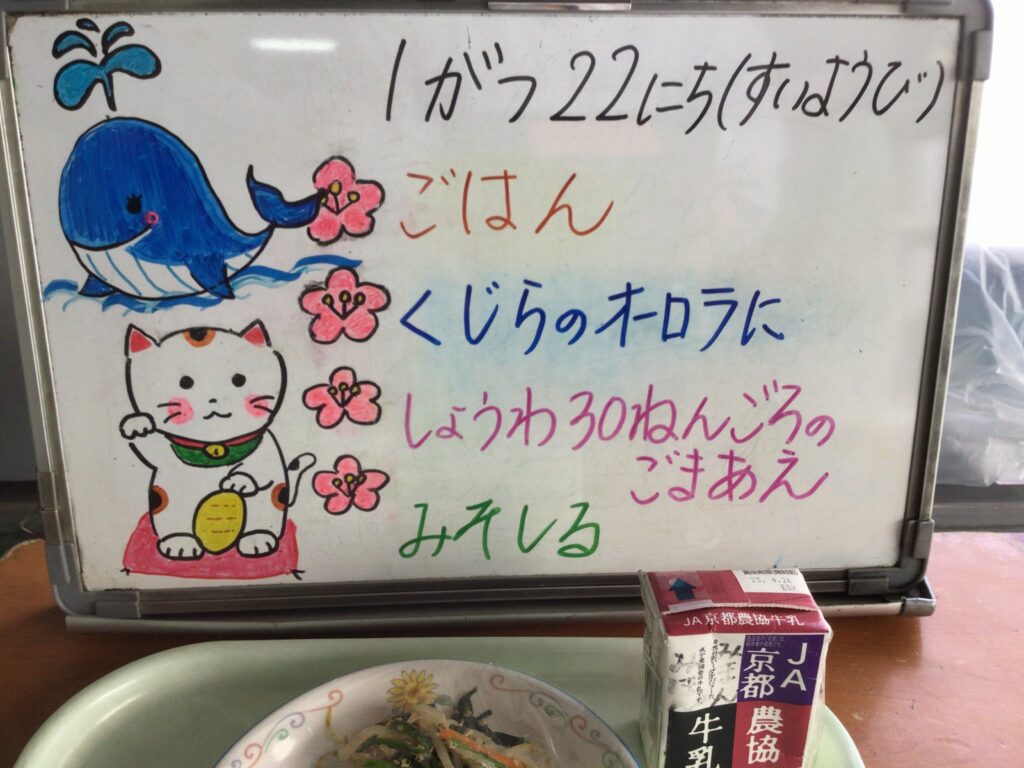 1がつ22にち(すいようび)
ごはん
くじらのオーロラに
しょうわ30ねんごろの
ごまあえ
みそしる
23.4.26
JA京都農協牛乳
JA
京都
農協
牛乳